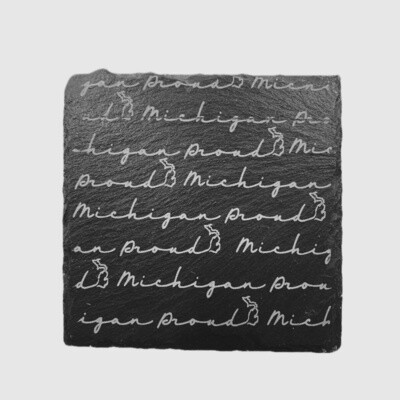 gan Proud Michi
ud Michigan Pro
higan Proud Mic
Proud Michigan
Michigan Proud
an Proud Michig
d Michigan Prou
igan Proud Mich